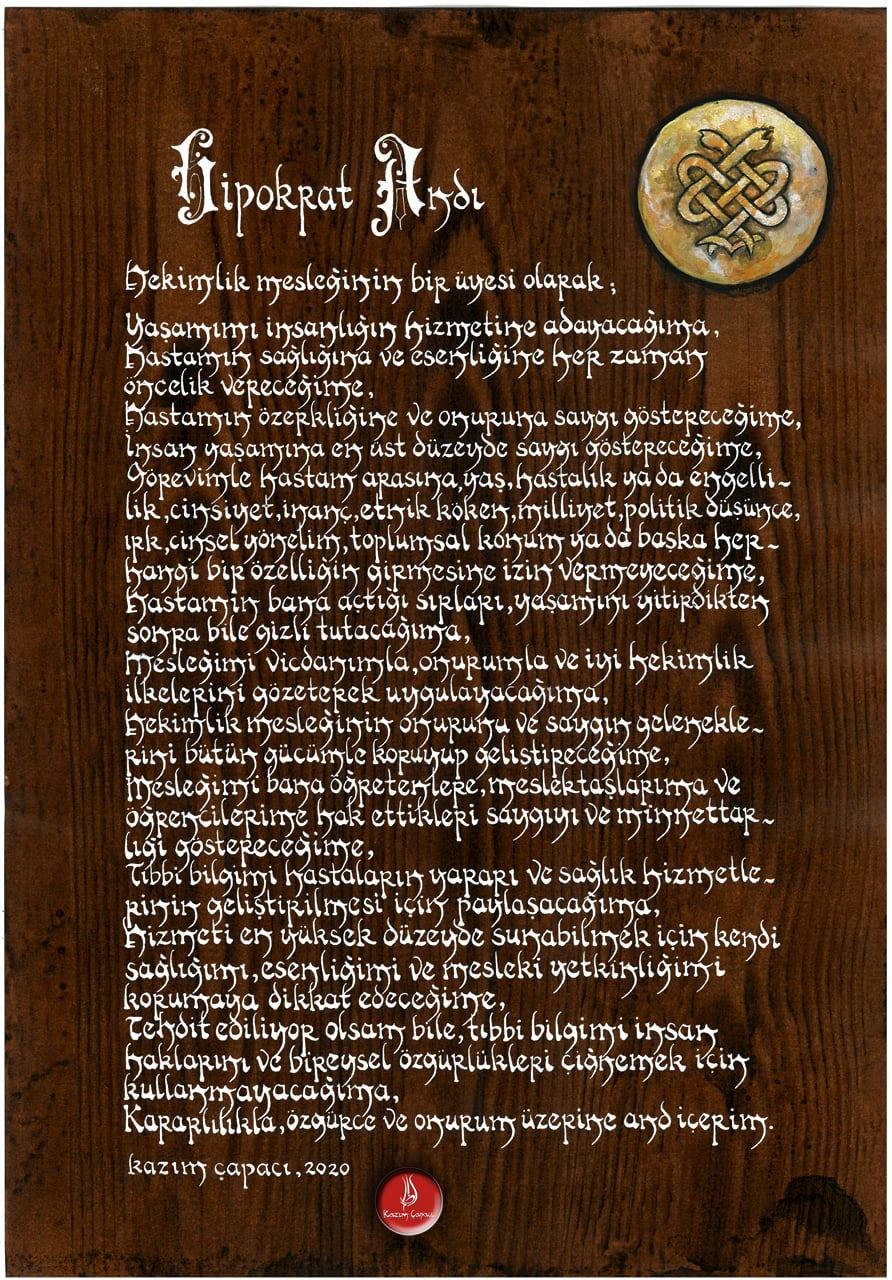 Hipokrat Andı
Hekimlik mesleğinin bir üyesi olarak ;
Yaşamımı insanlığın hizmetine adayacağıma,
Hastamın sağlığına ve esenliğine her zaman
öncelik vereceğime,
Hastamın özerkliğine ve onuruna saygı göstereceğime,
İnsan yaşamına en üst düzeyde saygı göstereceğime,
Görevimle hastam arasına,yaş,hastalık ya da engelli-
lik,cinsiyet,inanç,etnik köken,milliyet,politik düşünce,
ırk,cinsel yönelim,toplumsal konum ya da başka her-
hangi bir özelliğin girmesine izin vermeyeceğime,
Hastamın bana açtığı sırları,yaşamını yitirdikten
sonra bile gizli tutacağıma,
Mesleğimi vicdanımla,onurumla ve iyi hekimlik
ilkelerini gözeterek uygulayacağıma,
Hekimlik mesleğinin onurunu ve saygın gelenekle-
rini bütün gücümle koruyup geliştireceğime,
Mesleğimi bana öğretenlere,meslektaşlarıma ve
öğrencilerime hak ettikleri saygıyı ve minnettar-
lığı göstereceğime,
Tıbbi bilgimi hastaların yararı ve sağlık hizmetle-
rinin geliştirilmesi için paylaşacağıma,
Hizmeti en yüksek düzeyde sunabilmek için kendi
sağlığımı,esenliğimi ve mesleki yetkinliğimi
korumaya dikkat edeceğime,
Tehdit ediliyor olsam bile,tıbbi bilgimi insan
haklarını ve bireysel özgürlükleri çiğnemek için
kullanmayacağıma,
Kararlılıkla,özgürce ve onurum üzerine and içerim.
kazım çapacı,2020
Kazım Çapacı